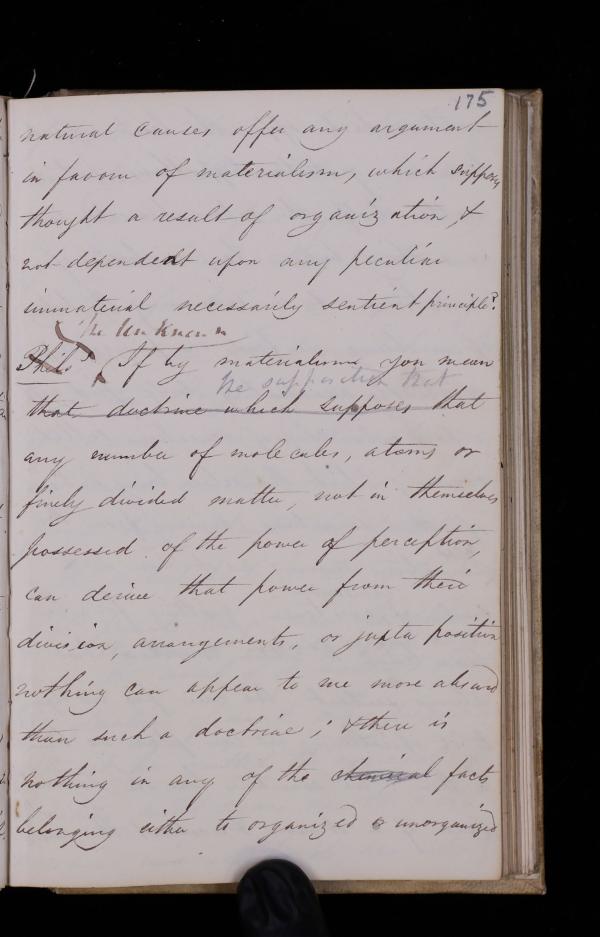 175
natural causes offer any argument
in favour of materialism, which supposes
thought a result of organization, &
not dependent upon any peculiar
immaterial necessarily sentient principle?
The Unknown
Phils. If by materialism you mean
the supposition that
that doctrine which supposes that
any number of molecules, atoms or
finely divided matter, not in themselves
possessed of the power of perception,
can derive that power from their
division, arrangements, or juxta position
nothing can appear to me more absurd
than such a doctrine; & there is
nothing in any of the chemical facts
belonging either to organized or unorganized